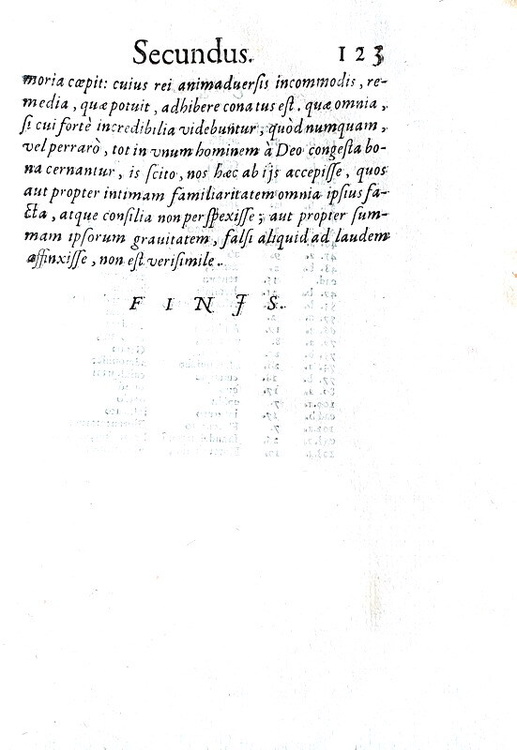 Secundus. 123
moria cœpit: cuius rei animaduersis incommodis, re-
media, quæ potuit, adhibere conatus est. quæ omnia,
si cui fortè incredibilia videbuntur, quòd numquam,
vel perrarò, tot in vnum hominem à Deo congesta bo-
na cernantur, is scito, nos hæc ab ijs accepisse, quos
aut propter intimam familiaritatem omnia ipsius fa-
cta, atque consilia non perspexisse; aut propter sum-
mam ipsorum grauitatem, falsi aliquid ad laudem
affinxisse, non est verisimile.
FINIS.